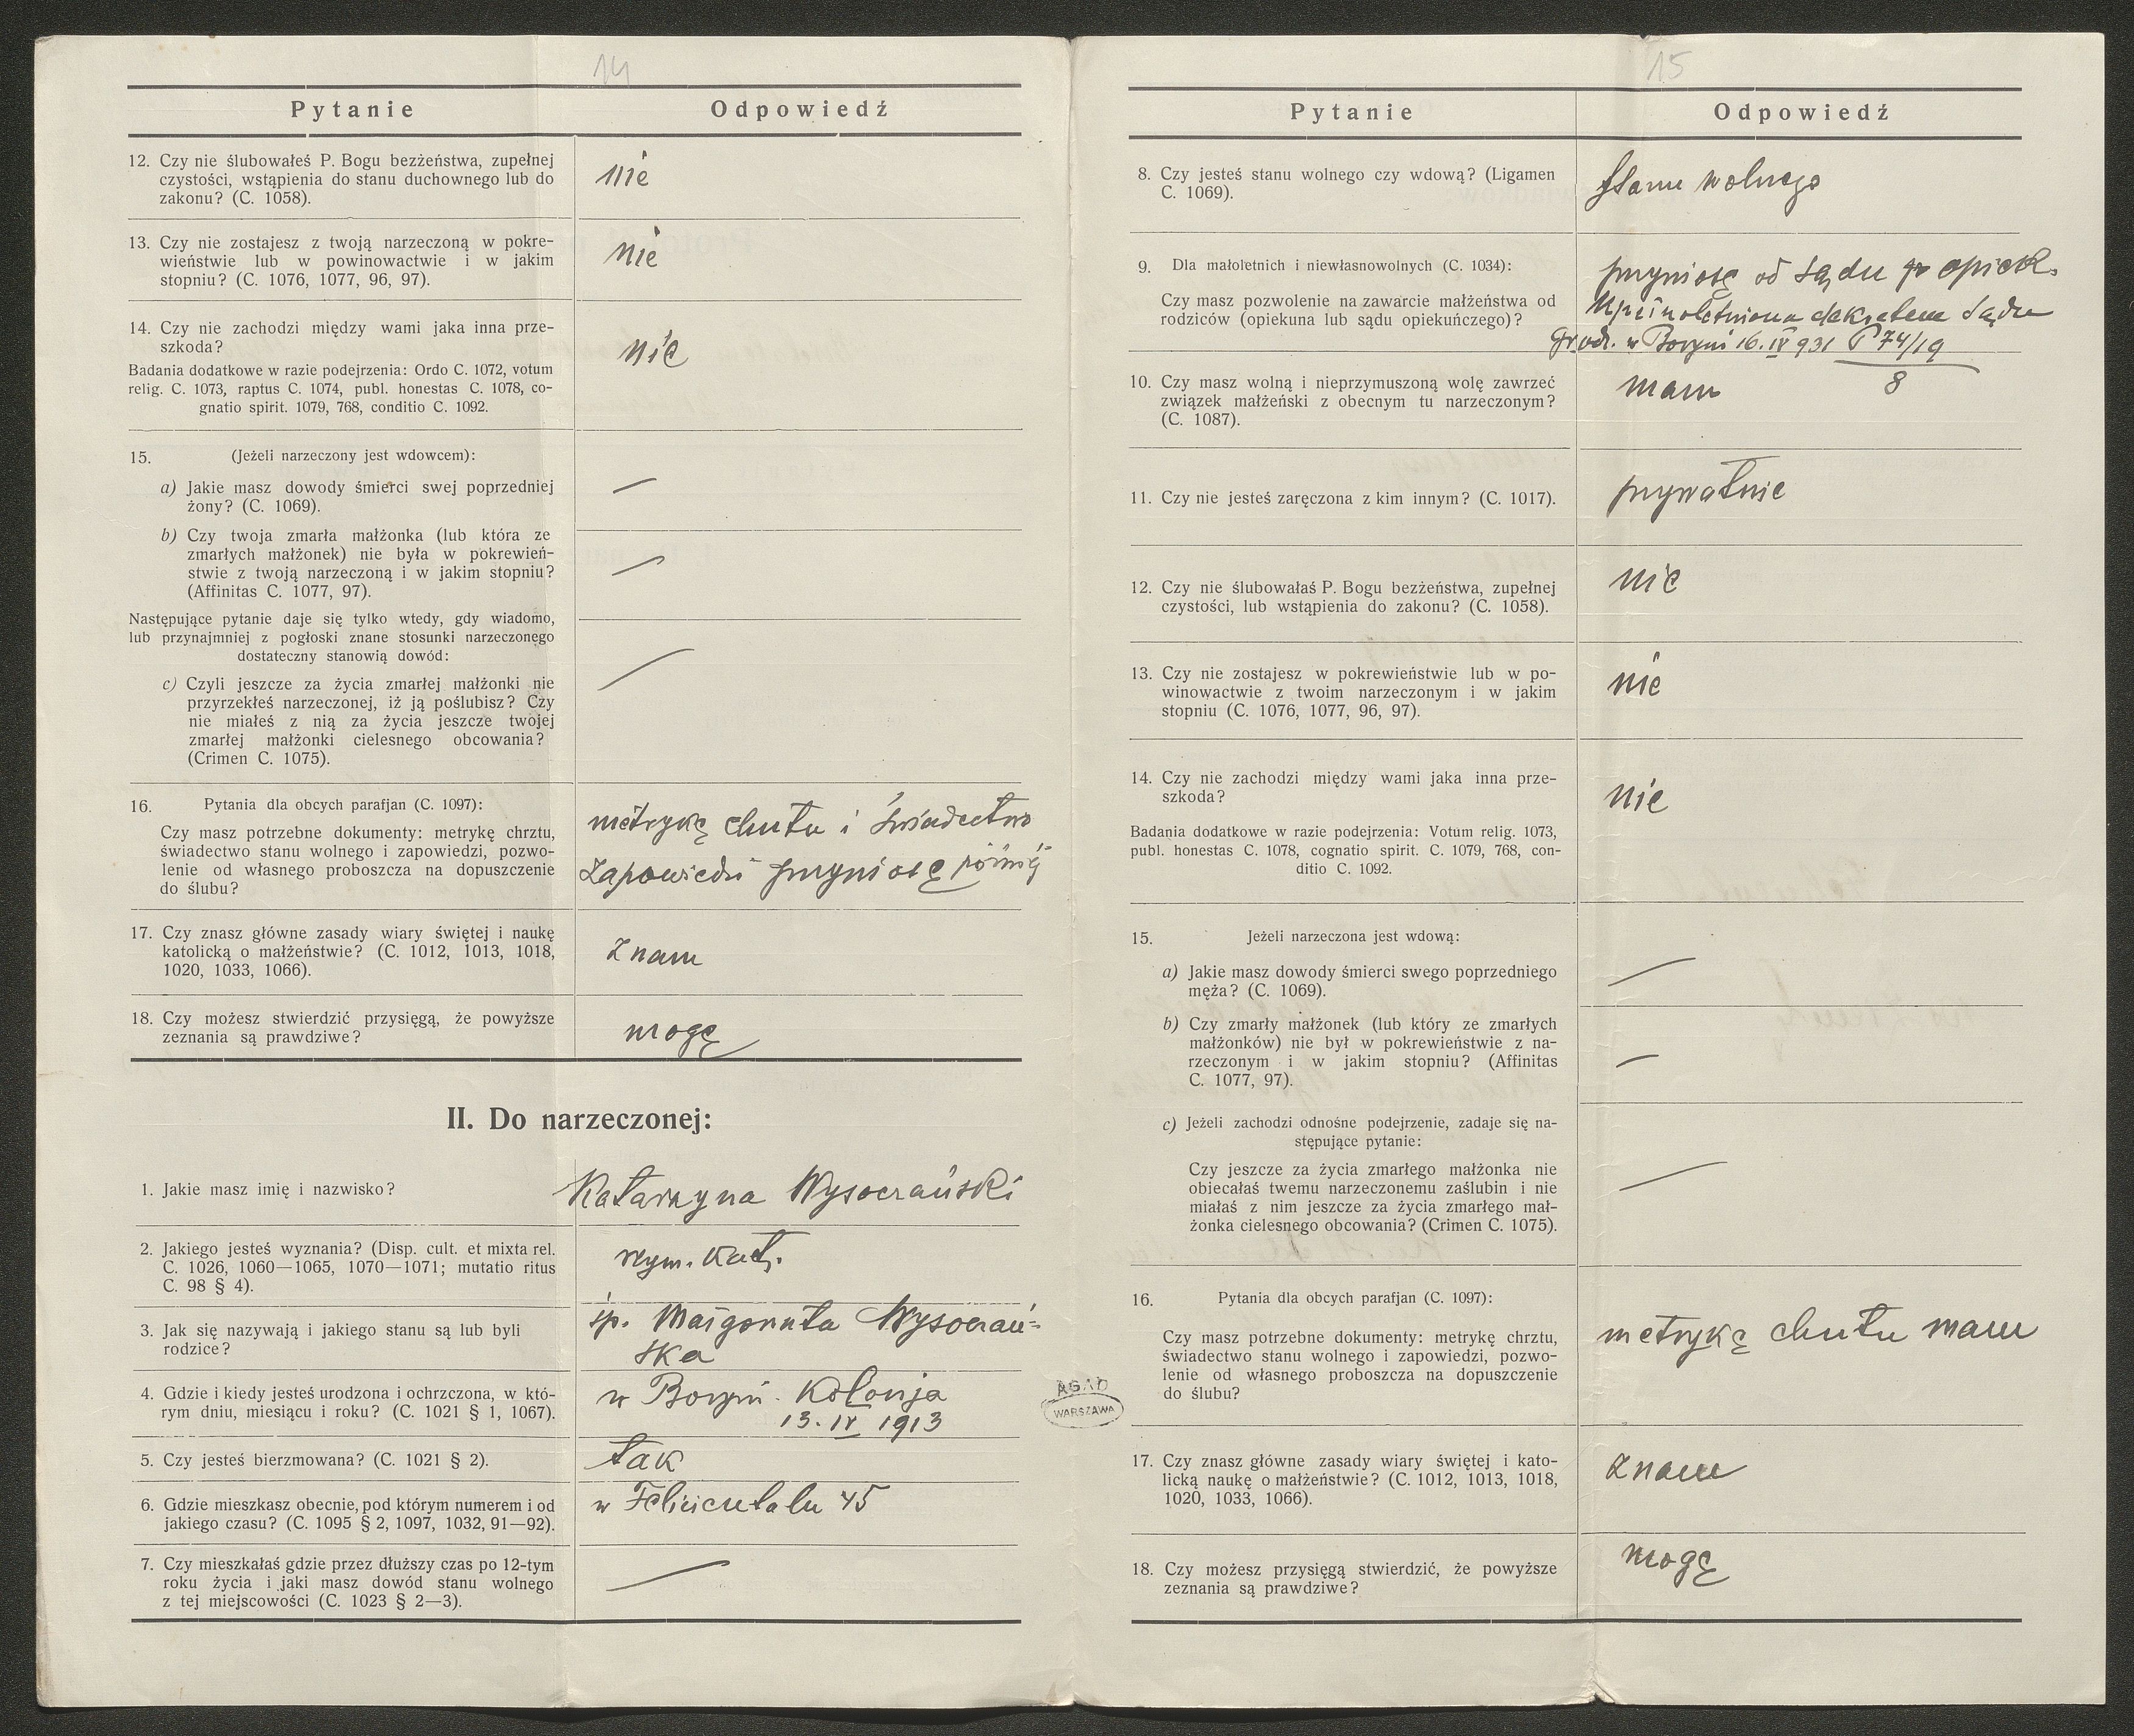 14
Pytanie
Odpowiedź
12. Czy nie ślubowałeś P. Bogu bezżeństwa, zupełnej
czystości, wstąpienia do stanu duchownego lub do
zakonu? (C. 1058).
nie
13. Czy nie zostajesz z twoją narzeczoną w pokre-
wieństwie lub w powinowactwie i w jakim
stopniu? (C. 1076, 1077, 96, 97).
nie
14. Czy nie zachodzi między wami jaka inna prze-
szkoda?
Badania dodatkowe w razie podejrzenia: Ordo C. 1072, votum
relig. C. 1073, raptus C. 1074, publ. honestas C. 1078, co-
gnatio spirit. 1079, 768, conditio C. 1092.
nie
15. (Jeżeli narzeczony jest wdowcem):
a) Jakie masz dowody śmierci swej poprzedniej
żony? (C. 1069).
—
b) Czy twoja zmarła małżonka (lub która ze
zmarłych małżonek) nie była w pokrewień-
stwie z twoją narzeczoną i w jakim stopniu?
(Affinitas C. 1077, 97).
—
Następujące pytanie daje się tylko wtedy, gdy wiadomo,
lub przynajmniej z pogłoski znane stosunki narzeczonego
dostateczny stanowią dowód:
c) Czyli jeszcze za życia zmarłej małżonki nie
przyrzekłeś narzeczonej, iż ją poślubisz? Czy
nie miałeś z nią za życia jeszcze twojej
zmarłej małżonki cielesnego obcowania?
(Crimen C. 1075).
—
16. Pytania dla obcych parafjan (C. 1097):
Czy masz potrzebne dokumenty: metrykę chrztu,
świadectwo stanu wolnego i zapowiedzi, pozwo-
lenie od własnego proboszcza na dopuszczenie
do ślubu?
metrykę chrztu i świadectwo
zapowiedzi przyniosę później
17. Czy znasz główne zasady wiary świętej i naukę
katolicką o małżeństwie? (C. 1012, 1013, 1018,
1020, 1033, 1066).
znam
18. Czy możesz stwierdzić przysięgą, że powyższe
zeznania są prawdziwe?
mogę
II. Do narzeczonej:
1. Jakie masz imię i nazwisko?
Katarzyna Wysoczański
2. Jakiego jesteś wyznania? (Disp. cult. et mixta rel.
C. 1026, 1060—1065, 1070—1071; mutatio ritus
C. 98 § 4).
rzym. kat.
3. Jak się nazywają i jakiego stanu są lub byli
rodzice?
śp. Małgorzata Wysoczań-
ska
4. Gdzie i kiedy jesteś urodzona i ochrzczona, w któ-
rym dniu, miesiącu i roku? (C. 1021 § 1, 1067).
w Boryni. Kolonja
13. IV 1913
5. Czy jesteś bierzmowana? (C. 1021 § 2).
tak
6. Gdzie mieszkasz obecnie, pod którym numerem i od
jakiego czasu? (C. 1095 § 2, 1097, 1032, 91—92).
w Felicientalu 45
7. Czy mieszkałaś gdzie przez dłuższy czas po 12-tym
roku życia i jaki masz dowód stanu wolnego
z tej miejscowości (C. 1023 § 2—3).
—
AGAD
WARSZAWA
15
Pytanie
Odpowiedź
8. Czy jesteś stanu wolnego czy wdową? (Ligamen
C. 1069).
stanu wolnego
9. Dla małoletnich i niewłasnowolnych (C. 1034):
Czy masz pozwolenie na zawarcie małżeństwa od
rodziców (opiekuna lub sądu opiekuńczego)?
przyniosę od sądu opiek.
Upełnoletniona dekretem Sądu
grodz. w Boryni 16. IX 931 P 74/19
8
10. Czy masz wolną i nieprzymuszoną wolę zawrzeć
związek małżeński z obecnym tu narzeczonym?
(C. 1087).
mam
11. Czy nie jesteś zaręczona z kim innym? (C. 1017).
prywatnie
12. Czy nie ślubowałaś P. Bogu bezżeństwa, zupełnej
czystości, lub wstąpienia do zakonu? (C. 1058).
nie
13. Czy nie zostajesz w pokrewieństwie lub w po-
winowactwie z twoim narzeczonym i w jakim
stopniu (C. 1076, 1077, 96, 97).
nie
14. Czy nie zachodzi między wami jaka inna prze-
szkoda?
nie
Badania dodatkowe w razie podejrzenia: Votum relig. 1073,
publ. honestas C. 1078, cognatio spirit. C. 1079, 768, con-
ditio C. 1092.
15. Jeżeli narzeczona jest wdową:
a) Jakie masz dowody śmierci swego poprzedniego
męża? (C. 1069).
—
b) Czy zmarły małżonek (lub który ze zmarłych
małżonków) nie był w pokrewieństwie z na-
rzeczonym i w jakim stopniu? (Affinitas
C. 1077, 97).
—
c) Jeżeli zachodzi odnośne podejrzenie, zadaje się na-
stępujące pytanie:
Czy jeszcze za życia zmarłego małżonka nie
obiecałaś twemu narzeczonemu zaślubin i nie
miałaś z nim jeszcze za życia zmarłego mał-
żonka cielesnego obcowania? (Crimen C. 1075).
—
16. Pytania dla obcych parafjan (C. 1097):
Czy masz potrzebne dokumenty: metrykę chrztu,
świadectwo stanu wolnego i zapowiedzi, pozwo-
lenie od własnego proboszcza na dopuszczenie
do ślubu?
metrykę chrztu mam
17. Czy znasz główne zasady wiary świętej i kato-
licką naukę o małżeństwie? (C. 1012, 1013, 1018,
1020, 1033, 1066).
znam
18. Czy możesz przysięgą stwierdzić, że powyższe
zeznania są prawdziwe?
mogę